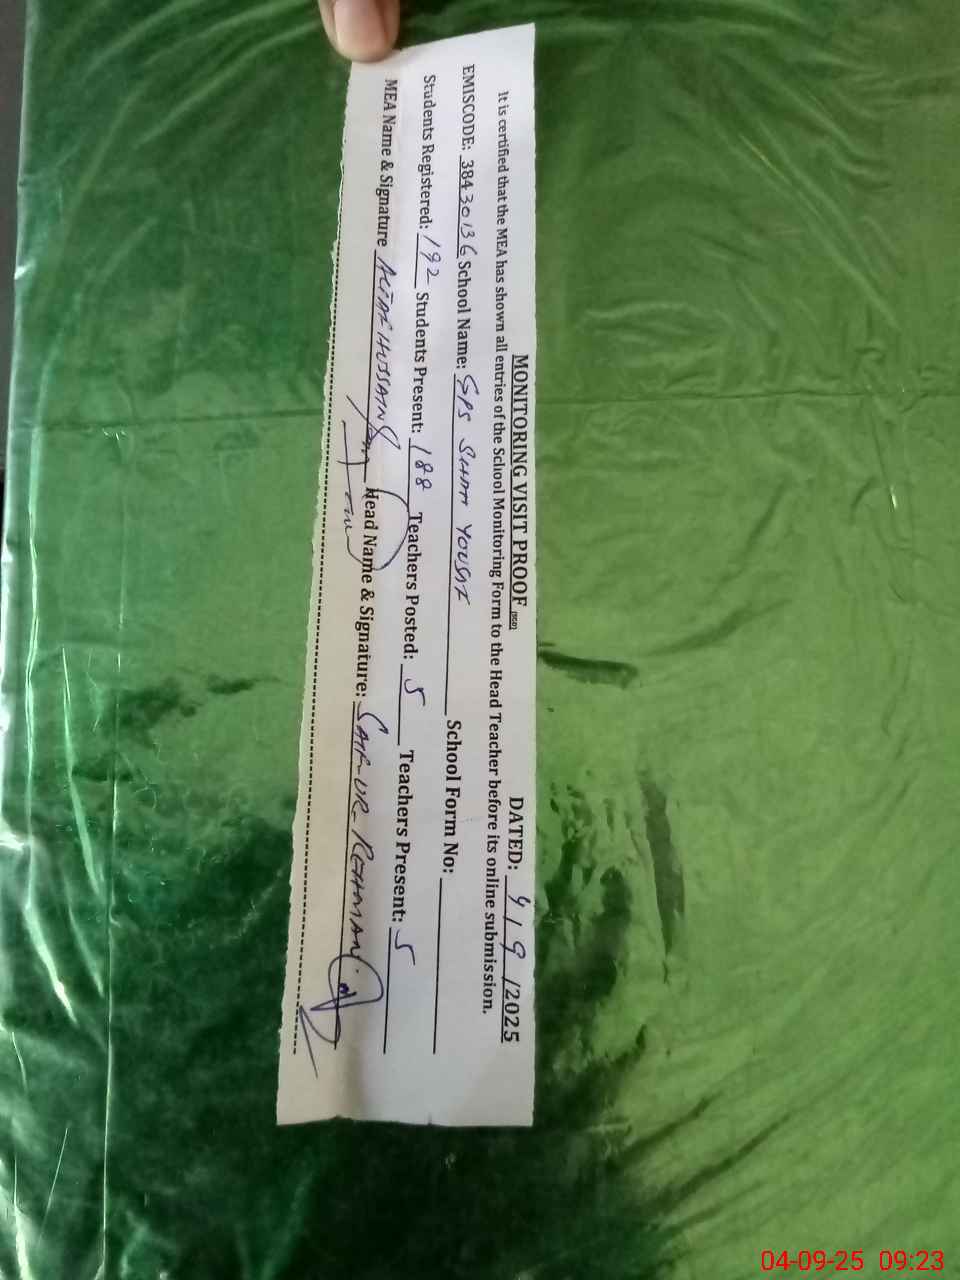 MONITORING VISIT PROOF (BSD) DATED: 4 / 9 /2025
It is certified that the MEA has shown all entries of the School Monitoring Form to the Head Teacher before its online submission.
EMISCODE: 38430136 School Name: GPS SHAH YOUSAF School Form No:
Students Registered: 192 Students Present: 188 Teachers Posted: 5 Teachers Present: 5
MEA Name & Signature ALTAF HUSSAIN Head Name & Signature: SAIF-UR-REHMAN
04-09-25 09:23